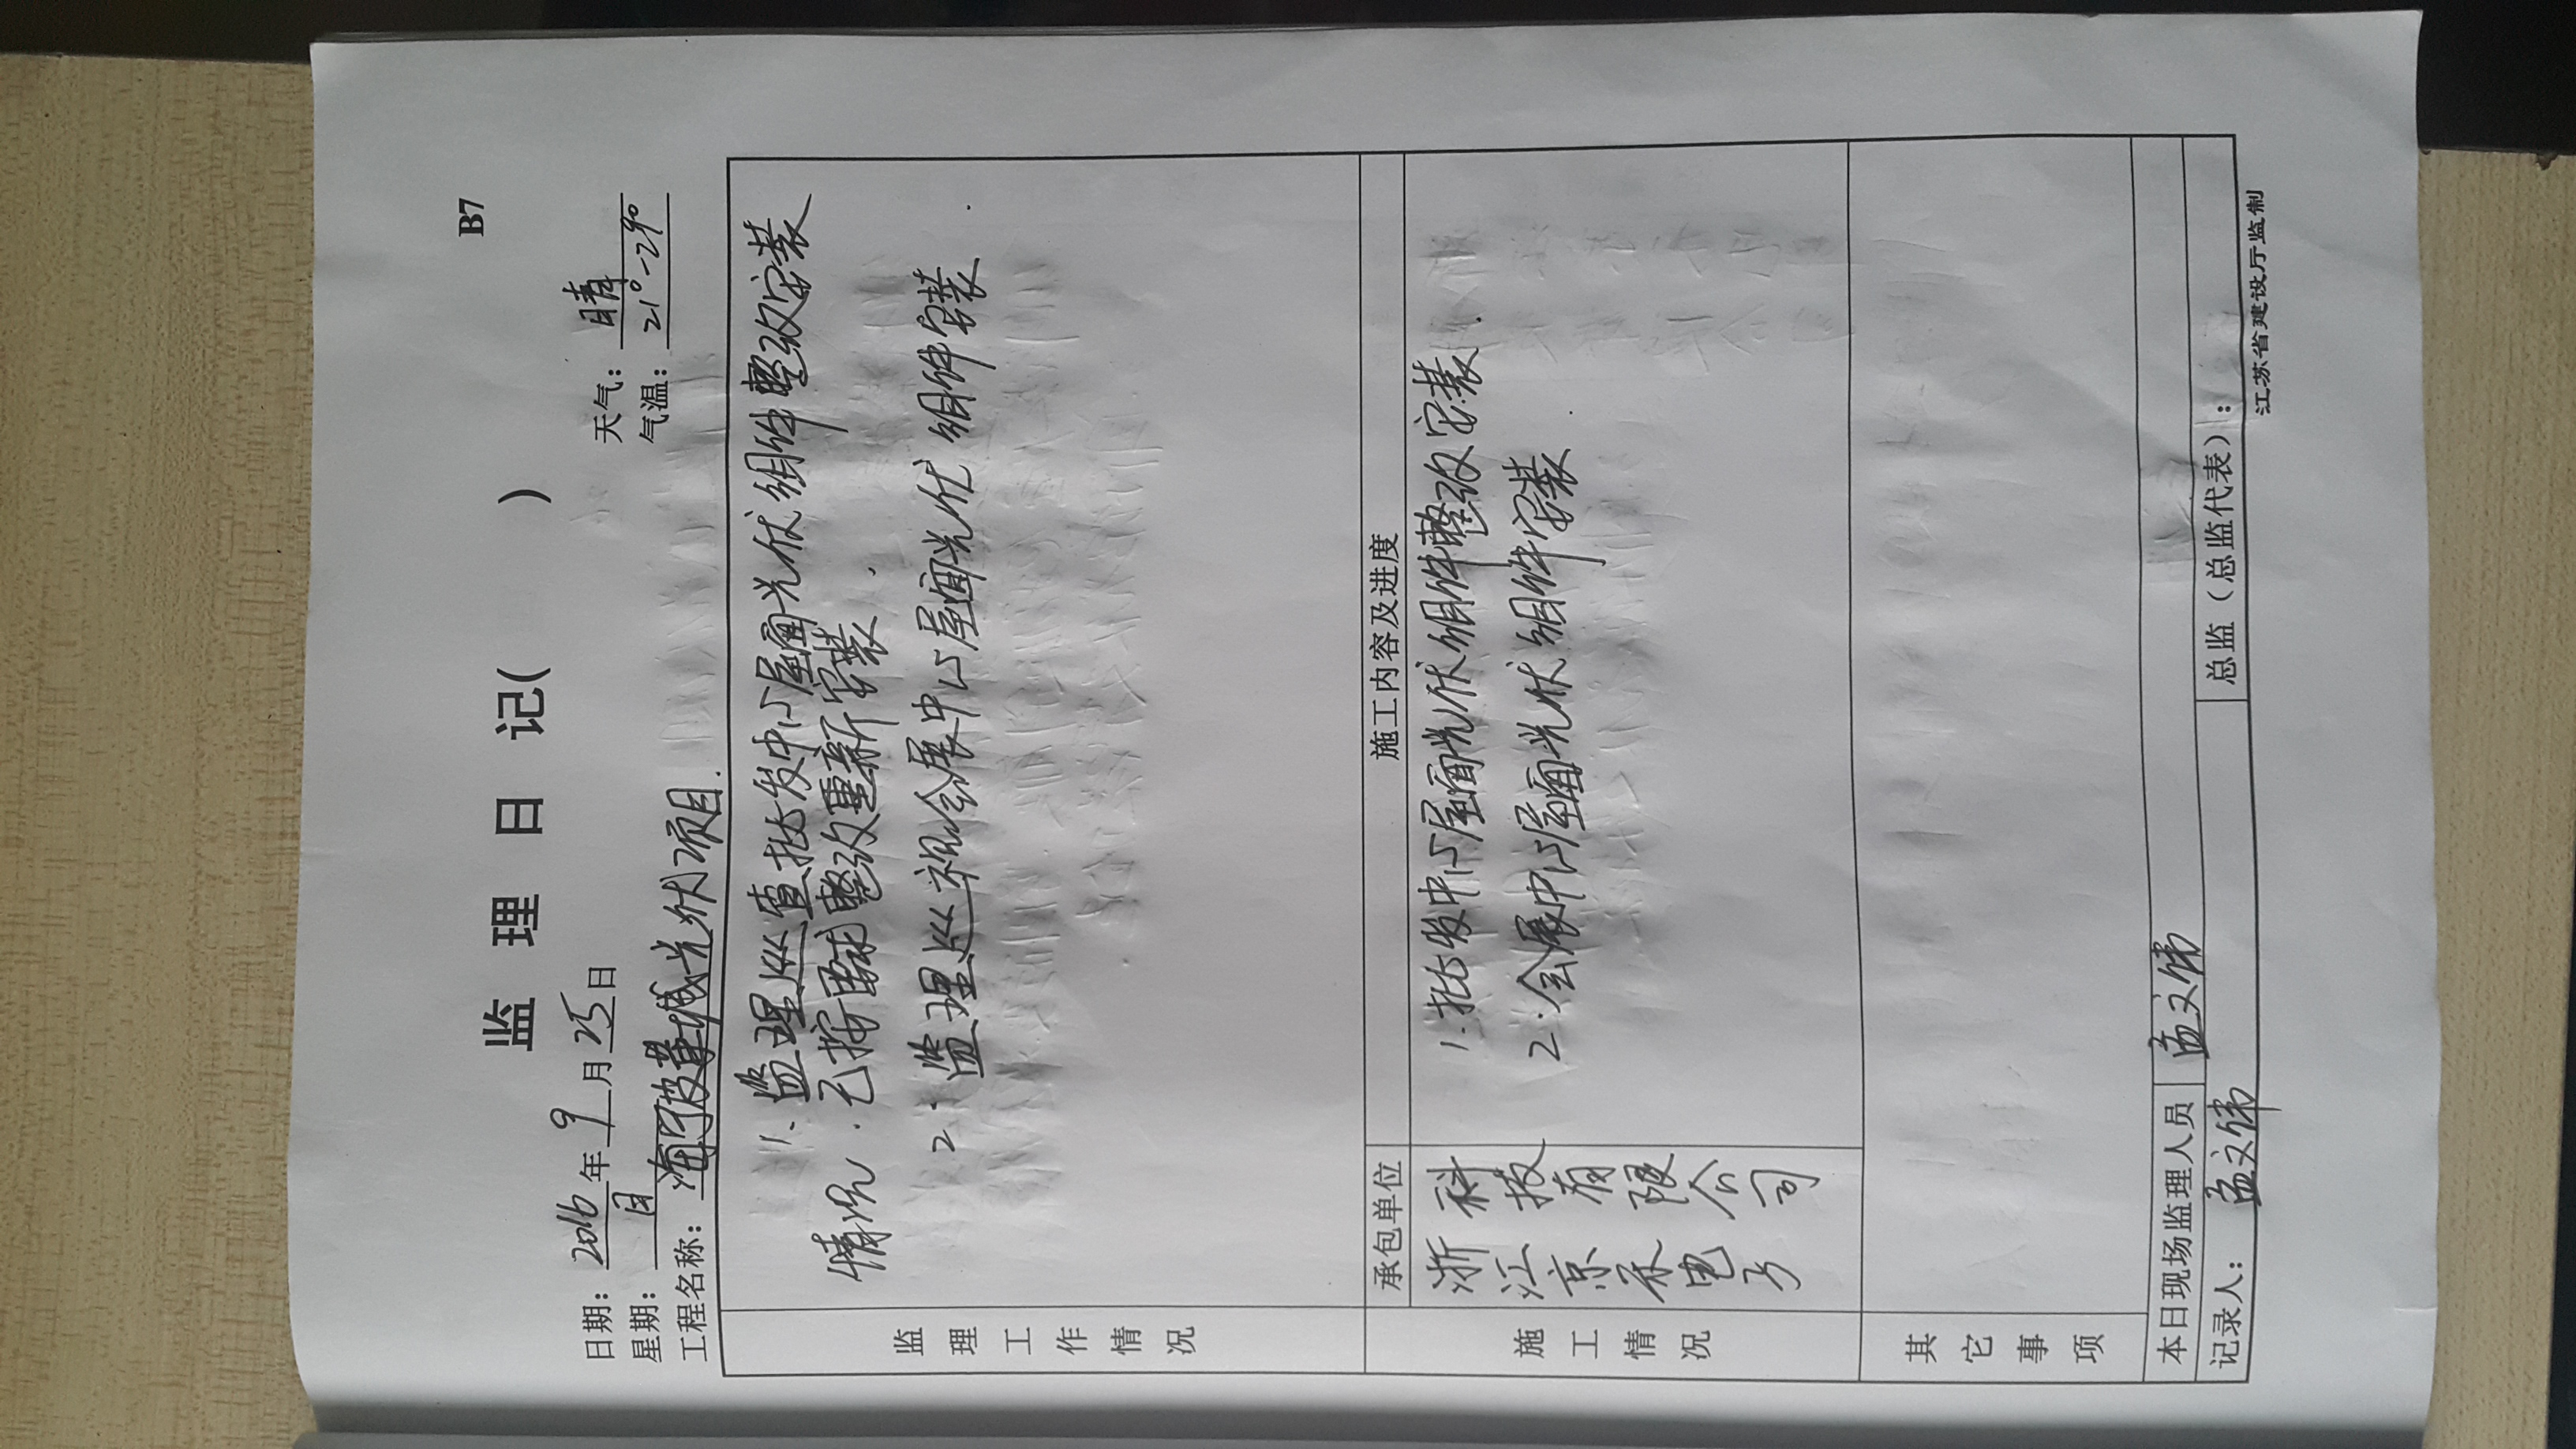 B7
监 理 日 记(      )
日期：2016年9月25日 天气：晴
星期：日 气温：21°-29°
工程名称：海宁皮革城光伏项目.
监理工作情况
1. 监理巡查批发中心屋面光伏组件整改安装
情况. 已按要求整改重新安装.
2. 监理巡视会展中心屋面光伏组件安装.
施工情况
承包单位 施工内容及进度
浙江京禾电子科技有限公司
1. 批发中心屋面光伏组件整改安装.
2. 会展中心屋面光伏组件安装.
其它事项
本日现场监理人员 孟文伟
记录人：孟文伟 总监（总监代表）：
江苏省建设厅监制